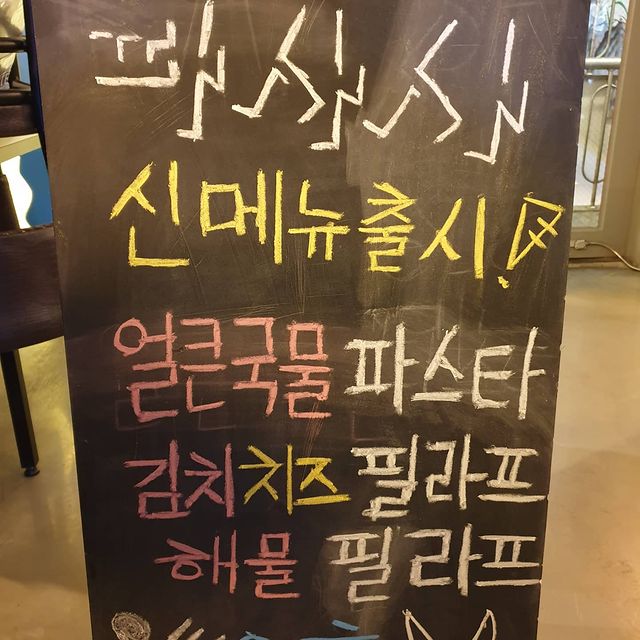 신메뉴출시!
얼큰국물 파스타
김치치즈 필라프
해물 필라프